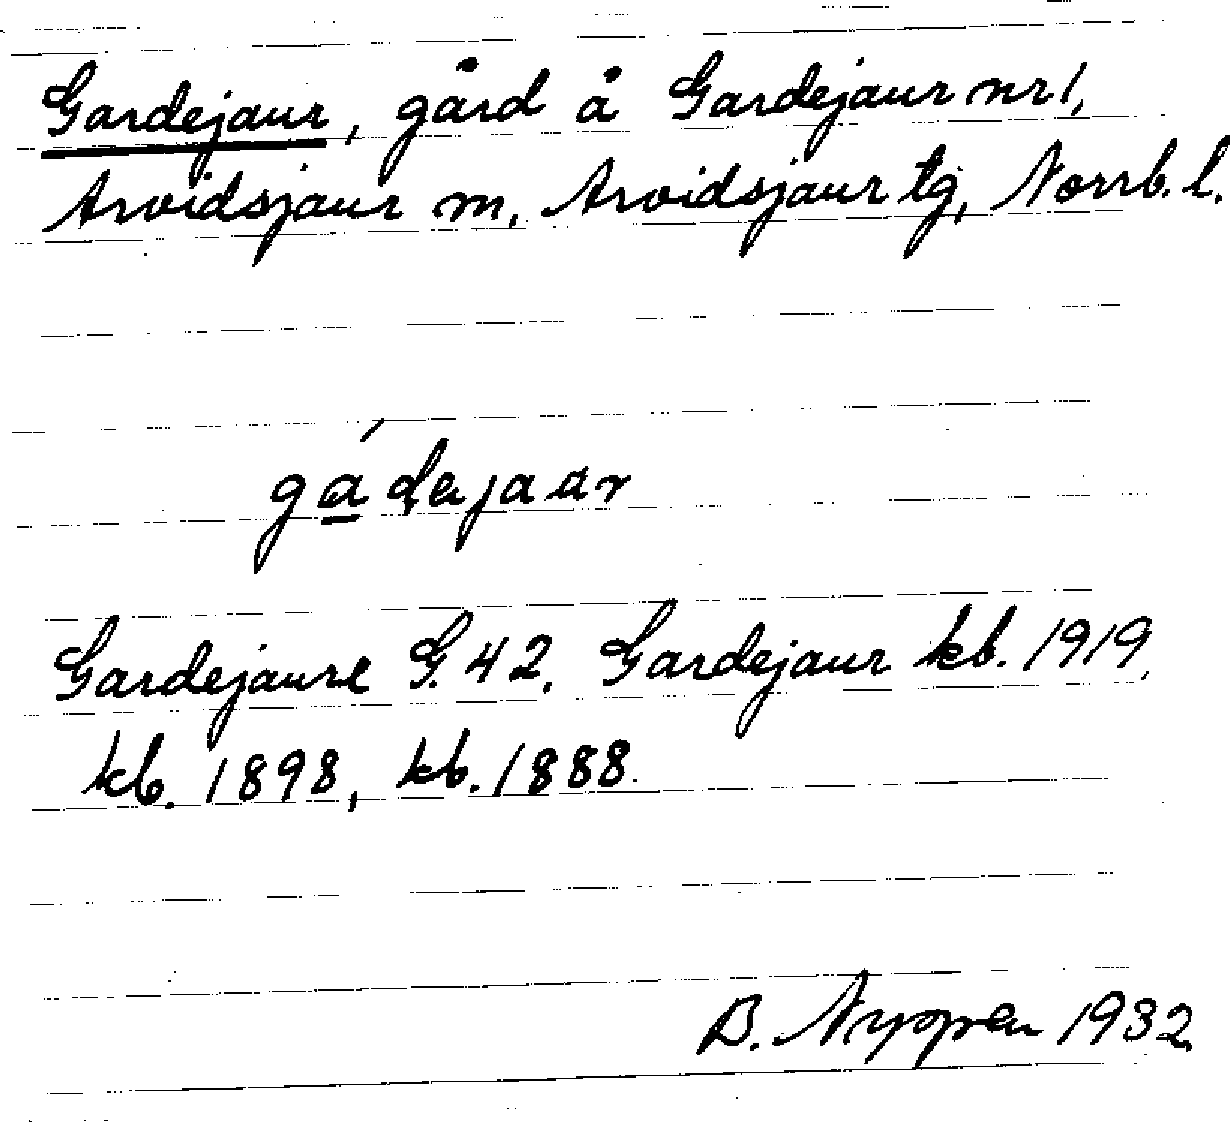 Gardejaur, gård å Gardejaur nr 1,
Arvidsjaur sn, Arvidsjaur tg, Norrb. l.
gádejaur
Gardejaure G. 42. Gardejaur kb. 1919,
kb. 1898, kb. 1888.
B. 1932